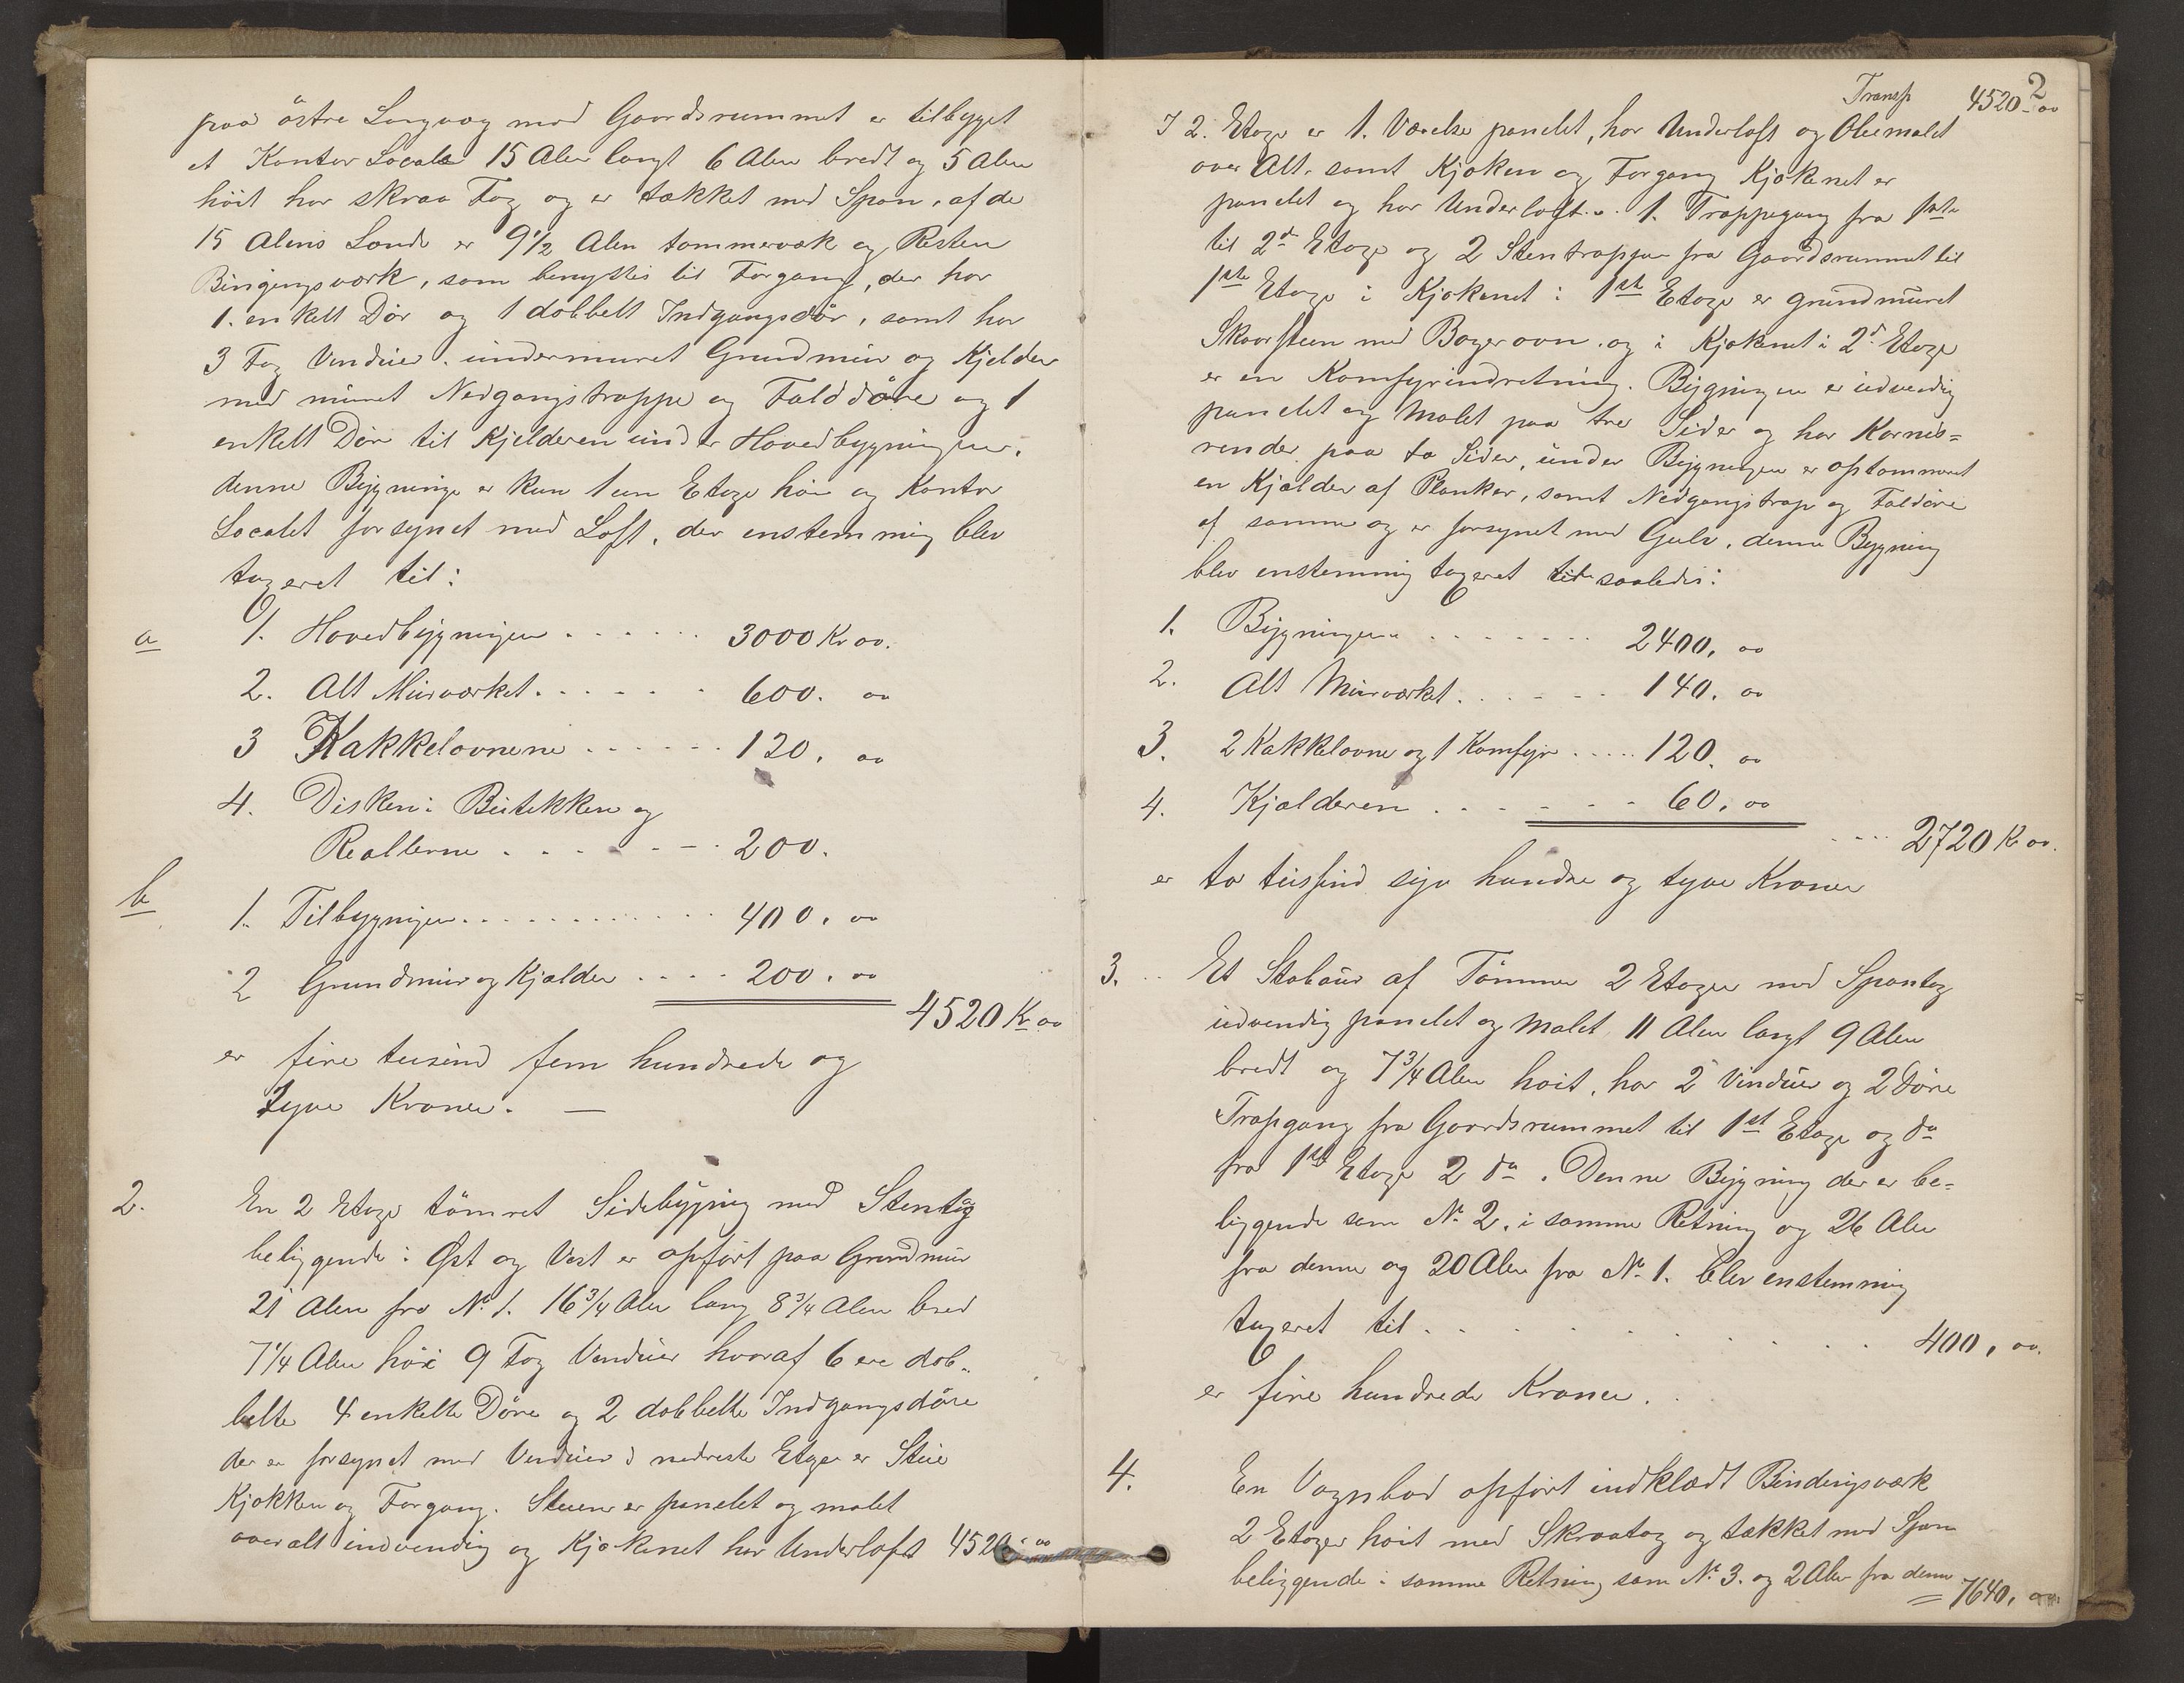 paa østre Langvæg mod Gaardsrummet er tilbygget
et Kontor Locale 15 Alen langt 6 Alen bredt og 5 Alen
høit har skraa Tag og er tækket med Spon, af de
15 Alens Længde er 9½ Alen tømmerværk og Resten
Bingingsværk, som benyttes til Forgang, der har
1. enkelt Dør og 1 dobbelt Indgangsdør, samt har
3 Fag Vinduer. undermuret Grundmur og Kjelder
med muret Nedgangstrappe og Falddøre og 1
enkelt Dør til Kjelderen under Hovedbygningen.
denne Bygninge er kun 1 een Etage høi og Kontor
Localet forsynet med Loft, der enstemmig blev
taxeret til:
a 1. Hovedbygningen . . . . . . 3000 Kr oo.
2. Alt Murværket . . . . . . 600. oo
3 Kakkelovnene . . . . . . 120. oo
4. Disken i Butikken og
Reallerne . . . . . . 200.
b 1. Tilbygningen . . . . . . . . . . . 400. oo
2 Grundmur og Kjælder . . . . 200. oo
4520 Kr oo
er fire tusind fem hundrede og
tyve Kroner. —
2. En 2 Etage tømret Sidebygning med Stentag
beliggende i Øst og Vest er opført paa Grundmur
21 Alen fra No 1. 16¾ Alen lang 8¾ Alen bred
7¼ Alen høi 9 Fag Vinduer hvoraf 6 ere dob-
belte 4 enkelte Døre og 2 dobbelte Indgangsdøre
der er forsynet med Vinduer i nederste Etage er Stue
Kjøkken og Forgang. Stuen er panelet og malet
overalt indvendig og Kjøkenet har Underloft 4520 oo
2
Transp 4520 - oo
I 2. Etage er 1. Værelse panelet, har Underloft og Oliemalet
over Alt. samt Kjøken og Forgang Kjøkenet er
panelet og har Underloft. 1. Trappegang fra 1ste
til 2d Etage og 2 Stentrapper fra Gaardsrummet til
1ste Etage i Kjøkenet i 1st Etage er grundmuret
Skorsteen med Bagerovn. og i Kjøkenet i 2d Etage
er en Komfyrindretning. Bygningen er udvendig
panelet og Malet paa tre Sider og har Karnis=
render paa to Sider, under Bygningen er optømmret
en Kjælder af Planker, samt Nedgangstrap og Faldøre
af samme og er forsynet med Gulv, denne Bygning
blev enstemmig taxeret til saaledes:
1. Bygningen . . . . . . . . 2400. oo
2. Alt Murværket . . . . . . 140. oo
3. 2 Kakkelovne og 1 Komfyr . . . . . 120. oo
4. Kjælderen . . . . . . 60. oo
. . . . 2720 Kr oo.
er to tusind syv hundre og tyve Kroner
3. Et Stabuur af Tømmer 2 Etager med Spontag
udvendig panelet og Malet 11 Alen langt 9 Alen
bredt og 7¾ Alen høit, har 2 Vinduer og 2 Døre
Trapgang fra Gaardsrummet til 1st Etage og do
fra 1ste Etage 2 do. Denne Bygning der er be=
liggende som No 2. i samme Retning og 26 Alen
fra denne og 20 Alen fra No 1. blev enstemmig
taxeret til . . . . . . . . . 400. oo.
er fire hundrede Kroner.
4. En Vognbod opført indklædt Bindingsværk
2 Etager høit med Skraatag og tækket med Spon
beliggende i samme Retning som No 3. og 2 Alen fra denne
7640. oo